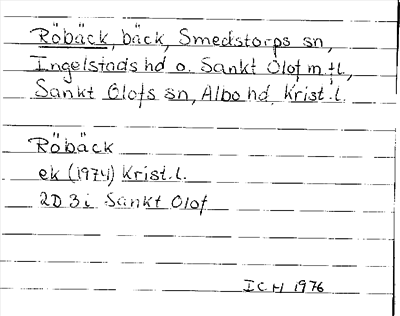 Röbäck, bäck, Smedstorps sn,
Ingelstads hd o. Sankt Olof m fl,
Sankt Olofs sn, Albo hd, Krist.l.
Röbäck
ek (1974) Krist.l.
2D 3i Sankt Olof
ICH 1976